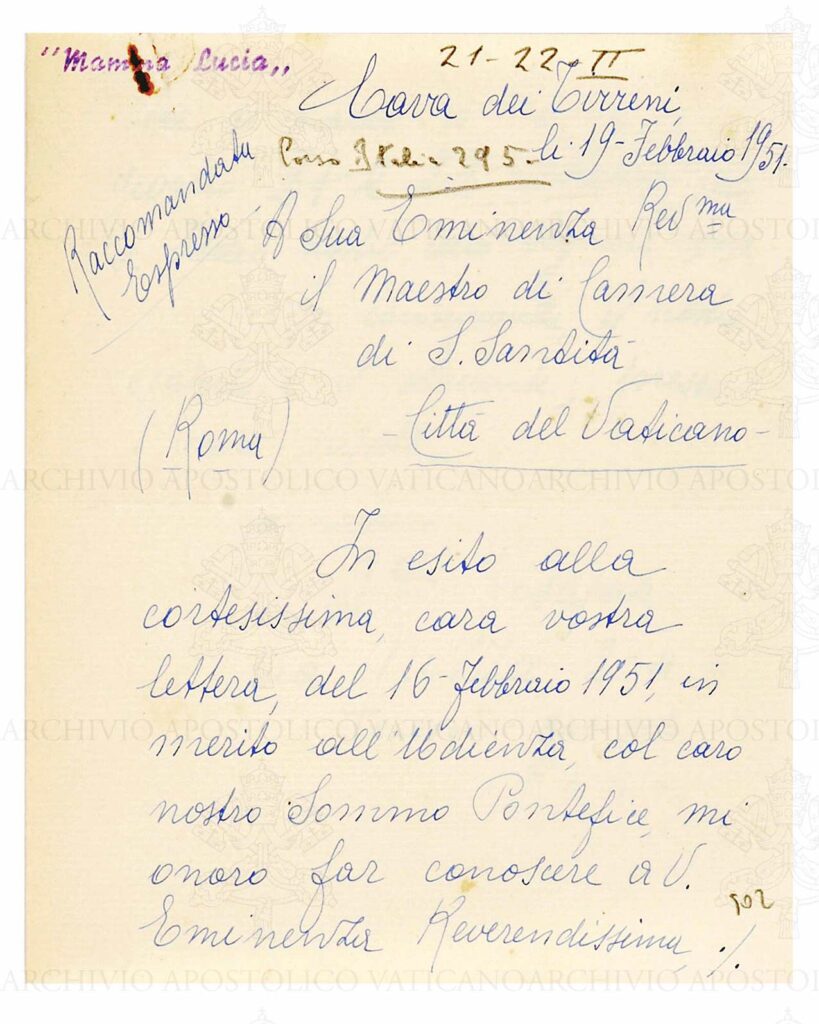 "Mamma Lucia„
21-22 II
Cava dei Tirreni,
Corso Italia 295. li 19-Febbraio 1951.
Raccomandata
Espresso
A Sua Eminenza Revma
il Maestro di Camera
di S. Santità
(Roma) -Città del Vaticano-
ARCHIVIO APOSTOLICO VATICANO
In esito alla
cortesissima, cara vostra
lettera, del 16-Febbraio 1951, in
merito all'Udienza, col caro
nostro Sommo Pontefice, mi
onoro far conoscere a V.
502
Eminenza Reverendissima, ./.